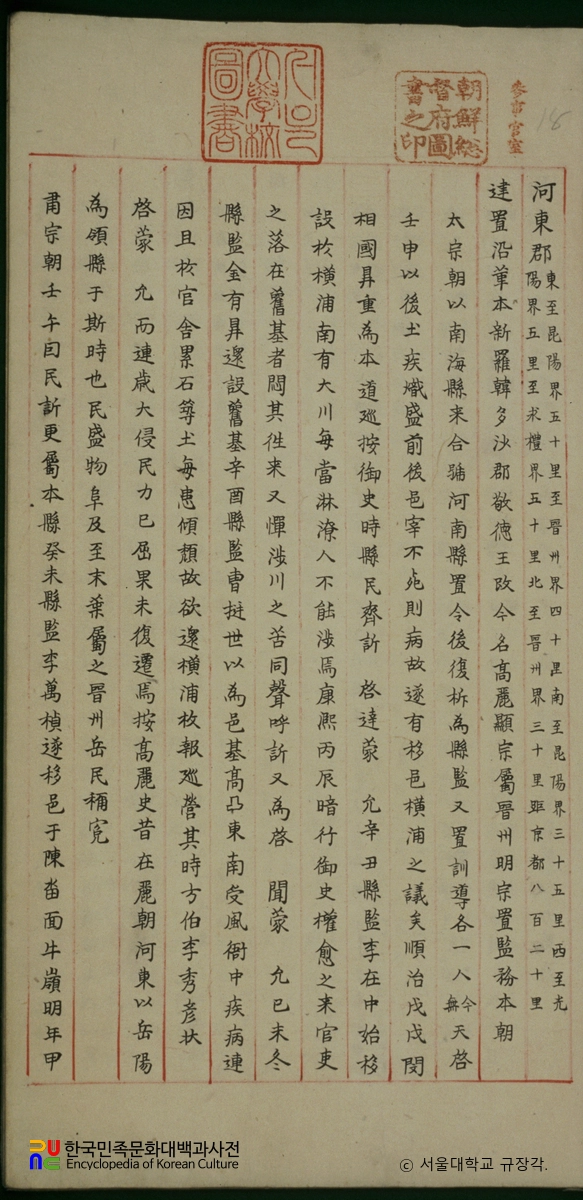 河東郡 東至昆陽界五十里至晉州界四十里南至昆陽界三十五里西至光
陽界五里至求禮界五十里北至晉州界三十里距京都八百二十里
建置沿革本新羅韓多沙郡敬德王改今名高麗顯宗屬晉州明宗置監務本朝
太宗朝以南海縣來合號河南縣置令後復析為縣監又置訓導各一人今無天啓
壬申以後土疾熾盛前後邑宰不死則病故遂有移邑橫浦之議矣順治戊戌閔
相國昇重為本道廵按御史時縣民齊訴 啓達蒙 允辛丑縣監李在中始移
設於橫浦南有大川每當淋潦人不能涉焉康熙丙辰暗行御史權愈之來官吏
之落在舊基者悶其徃來又憚涉川之苦同聲呼訴又為啓 聞蒙 允已未冬
縣監金有昇還設舊基辛酉縣監曹挺世以為邑基高亞東南受風衙中疾病連
因且於官舍累石築土每患傾頹故欲還橫浦枚報廵營其時方伯李秀彦狀
啓蒙 允而連歲大侵民力已屈果未復遷焉按高麗史昔在麗朝河東以岳陽
為領縣于斯時也民盛物阜及至末葉屬之晉州岳民稱寃
肅宗朝壬午因民訴更屬本縣癸未縣監李萬楨遂移邑于陳畓面牛嶺明年甲
朝鮮總
督府圖
書之印
參事官室
18
한국민족문화대백과사전
Encyclopedia of Korean Culture
ⓒ 서울대학교 규장각.